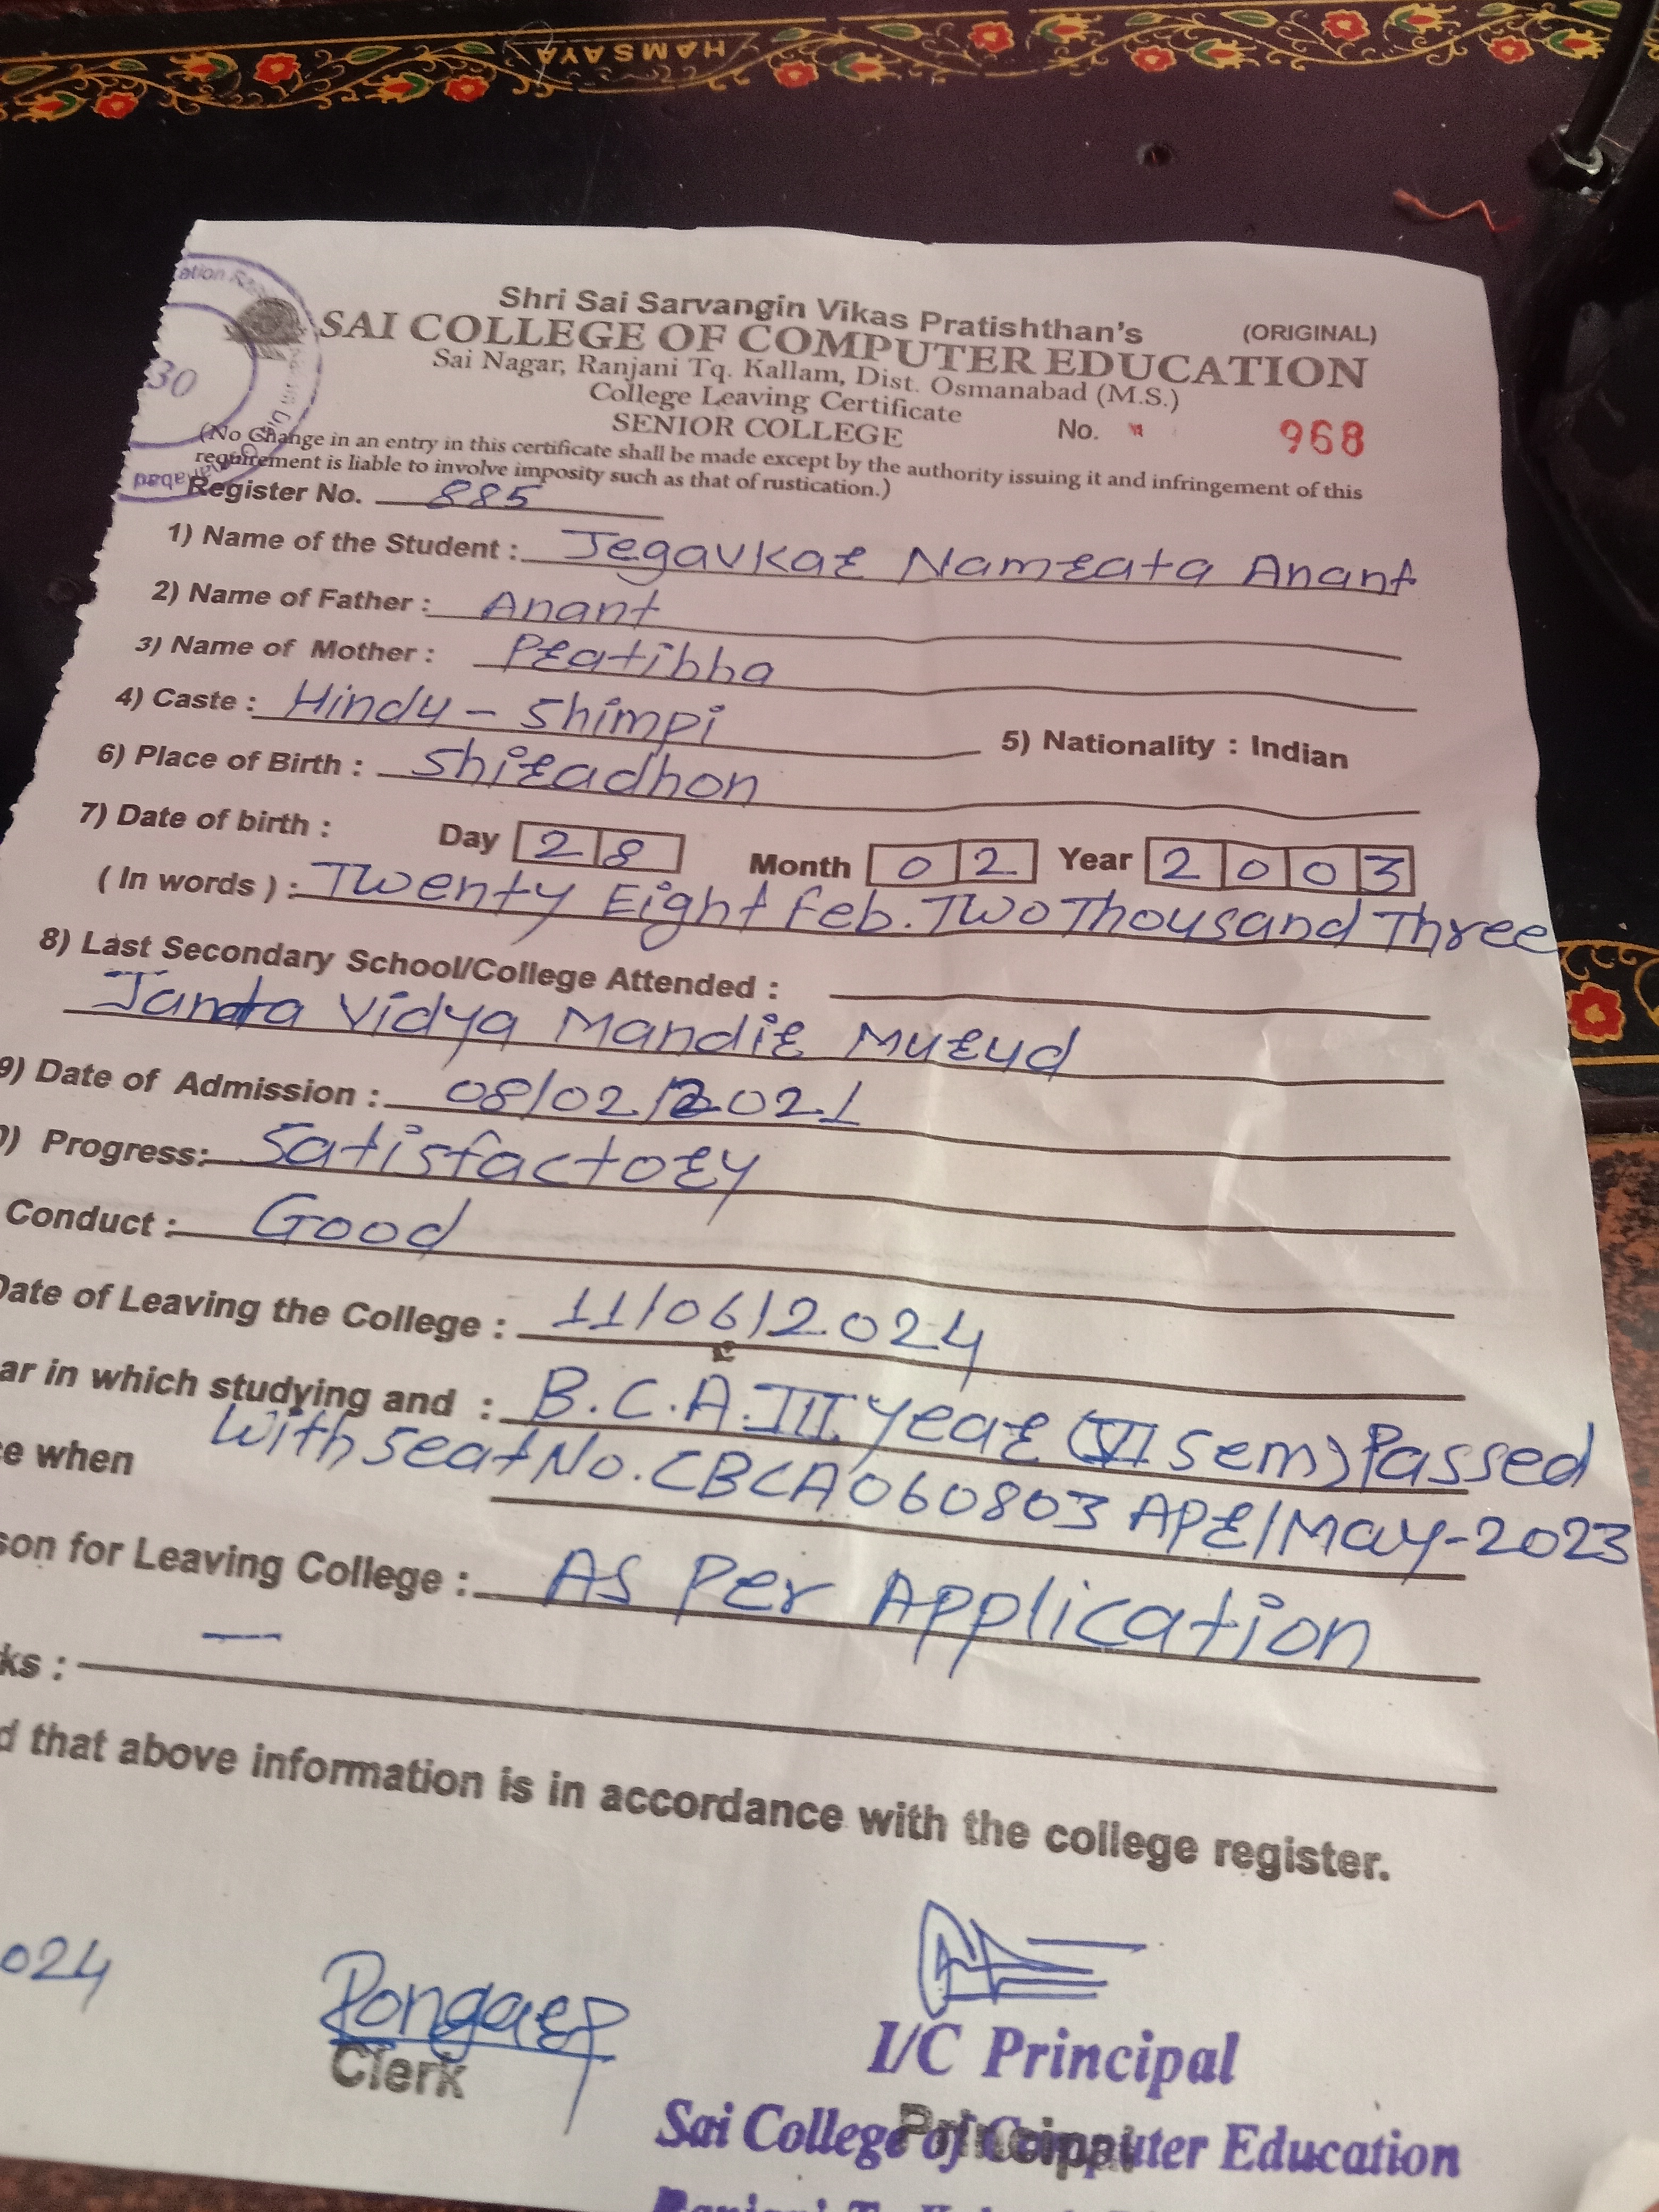 HAMSAYA
Shri Sai Sarvangin Vikas Pratishthan's
(ORIGINAL)
SAI COLLEGE OF COMPUTER EDUCATION
Sai Nagar, Ranjani Tq. Kallam, Dist. Osmanabad (M.S.)
College Leaving Certificate
SENIOR COLLEGE
No. 968
30
(No Change in an entry in this certificate shall be made except by the authority issuing it and infringement of this
requirement is liable to involve imposity such as that of rustication.)
Register No. 885
1) Name of the Student : Jegavkar Namrata Anant
2) Name of Father : Anant
3) Name of Mother : Pratibha
4) Caste : Hindu - Shimpi 5) Nationality : Indian
6) Place of Birth : Shiradhon
7) Date of birth : Day 28 Month 02 Year 2003
( In words ) : Twenty Eight Feb. Two Thousand Three
8) Last Secondary School/College Attended :
Janata Vidya Mandir Murud
9) Date of Admission : 08/02/2021
) Progress: Satisfactory
Conduct : Good
Date of Leaving the College : 11/06/2024
ar in which studying and : B.C.A. III year (VI sem) Passed
e when With Seat No. CBCA060803 APR/May-2023
son for Leaving College : As Per Application
ks : —
d that above information is in accordance with the college register.
024
Clerk
I/C Principal
Principal
Sai College of Computer Education